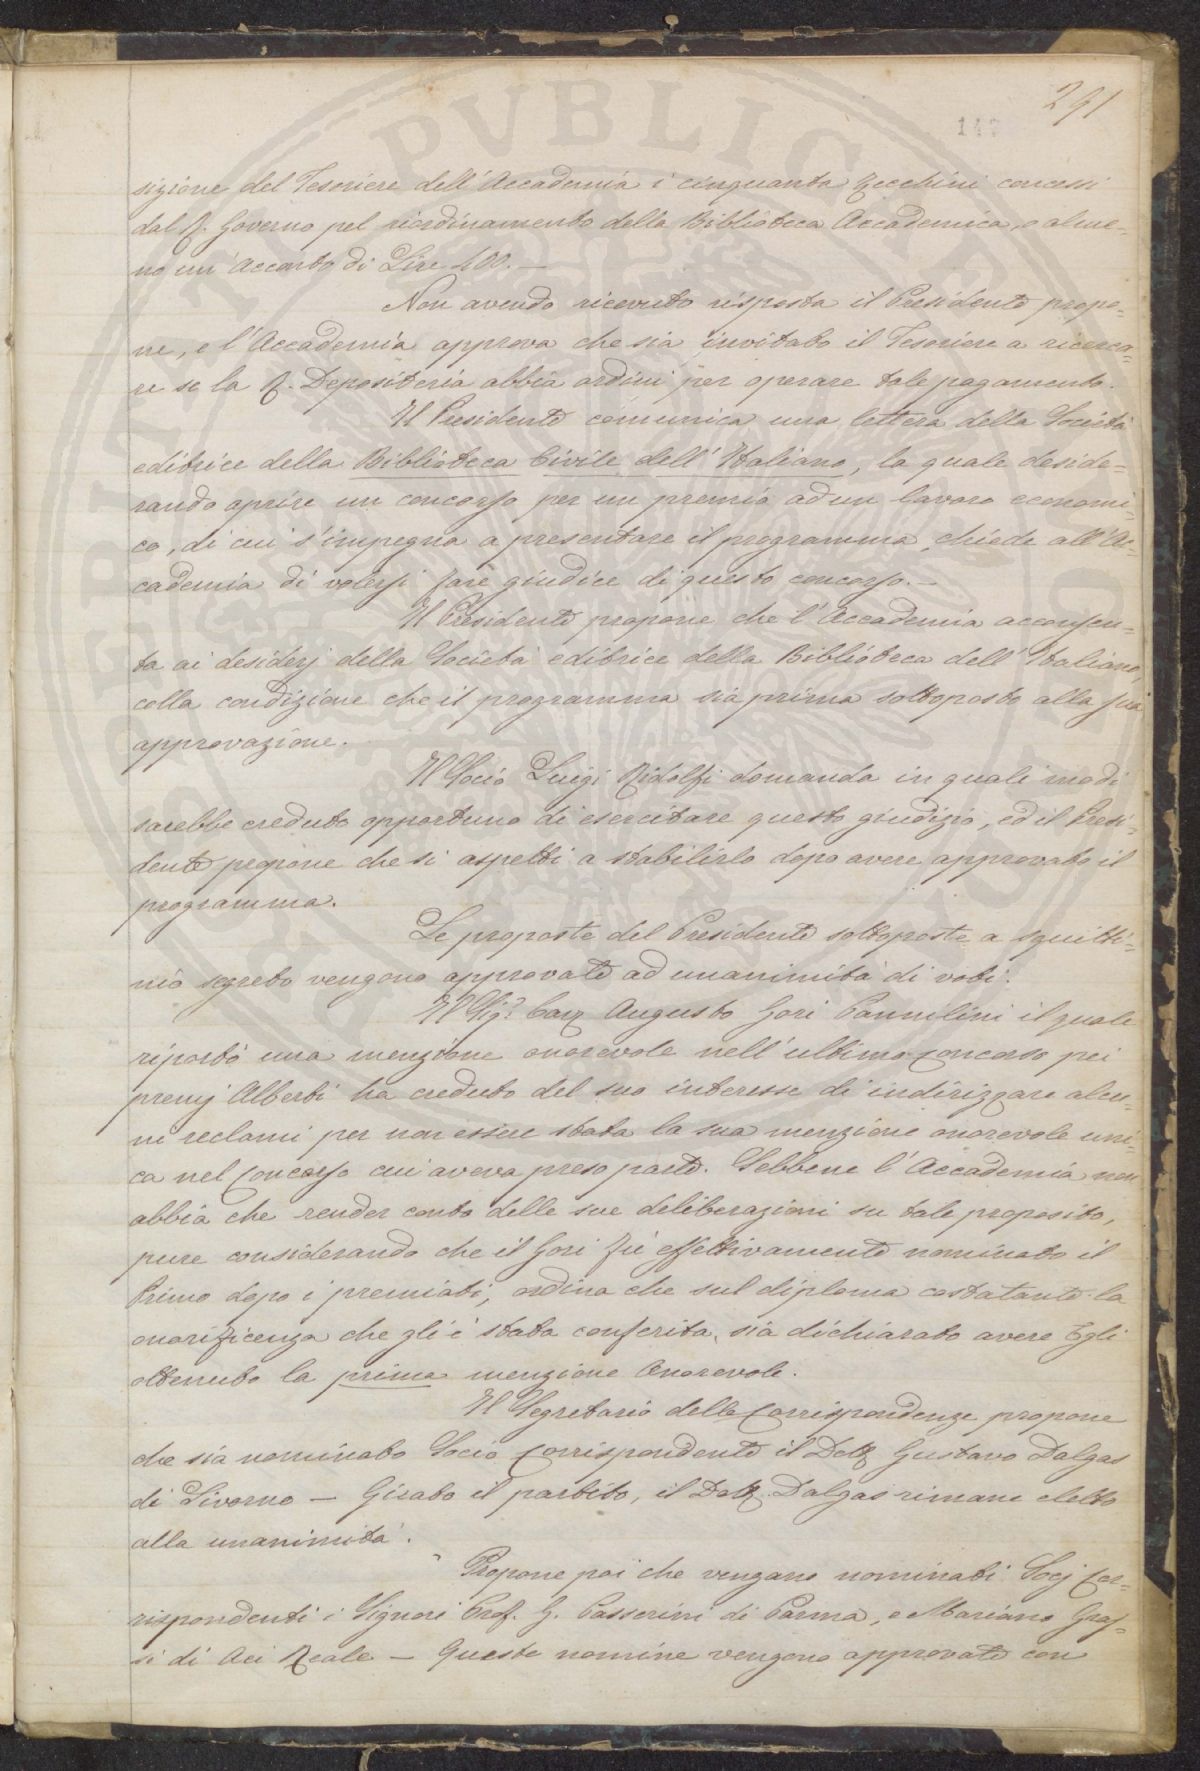 291
147
sizione del Tesoriere dell'Accademia i cinquanta Zecchini concessi
dal R. Governo pel riordinamento della Biblioteca Accademica, o alme=
no un'acconto di Lire 400.—
Non avendo ricevuto risposta il Presidente propo=
ne, e l'Accademia approva che sia invitato il Tesoriere a ricerca=
re se la R. Depositeria abbia ordini per operare tale pagamento.
Il Presidente comunica una lettera della Società
editrice della Biblioteca Civile dell'Italiano, la quale deside=
rando aprire un concorso per un premio ad un lavoro economi=
co, di cui s'impegna a presentare il programma, chiede all'Ac=
cademia di volersi fare giudice di questo concorso.—
Il Presidente propone che l'Accademia acconsen=
ta ai desiderj della Società editrice della Biblioteca dell'Italiano,
colla condizione che il programma sia prima sottoposto alla sua
approvazione.
Il Socio Luigi Ridolfi domanda in quali modi
sarebbe creduto opportuno di esercitare questo giudizio, ed il Presi=
dente propone che si aspetti a stabilirlo dopo avere approvato il
programma.
Le proposte del Presidente sottoposte a squitti=
nio segreto vengono approvate ad unanimità di voti.
Il Sig.r Cav Augusto Gori Pannilini il quale
riportò una menzione onorevole nell'ultimo concorso pei
premj Alberti ha creduto del suo interesse di indirizzare alcu=
ni reclami per non essere stata la sua menzione onorevole uni=
ca nel concorso cui aveva preso parte. Sebbene l'Accademia non
abbia che render conto delle sue deliberazioni su tale proposito,
pure considerando che il Gori fù effettivamente nominato il
Primo dopo i premiati, ordina che sul diploma costatante la
onorificenza che gli è stata conferita, sia dichiarato avere Egli
ottenuto la prima menzione Onorevole.
Il Segretario delle Corrispondenze propone
che sia nominato Socio Corrispondente il Dott. Gustavo Dalgas
di Livorno — Girato il partito, il Dott. Dalgas rimane eletto
alla unanimità.
Propone poi che vengano nominati Socj Cor=
rispondenti i Signori Prof. G. Passerini di Parma, e Mariano Gras=
si di Aci Reale — Queste nomine vengono approvate con